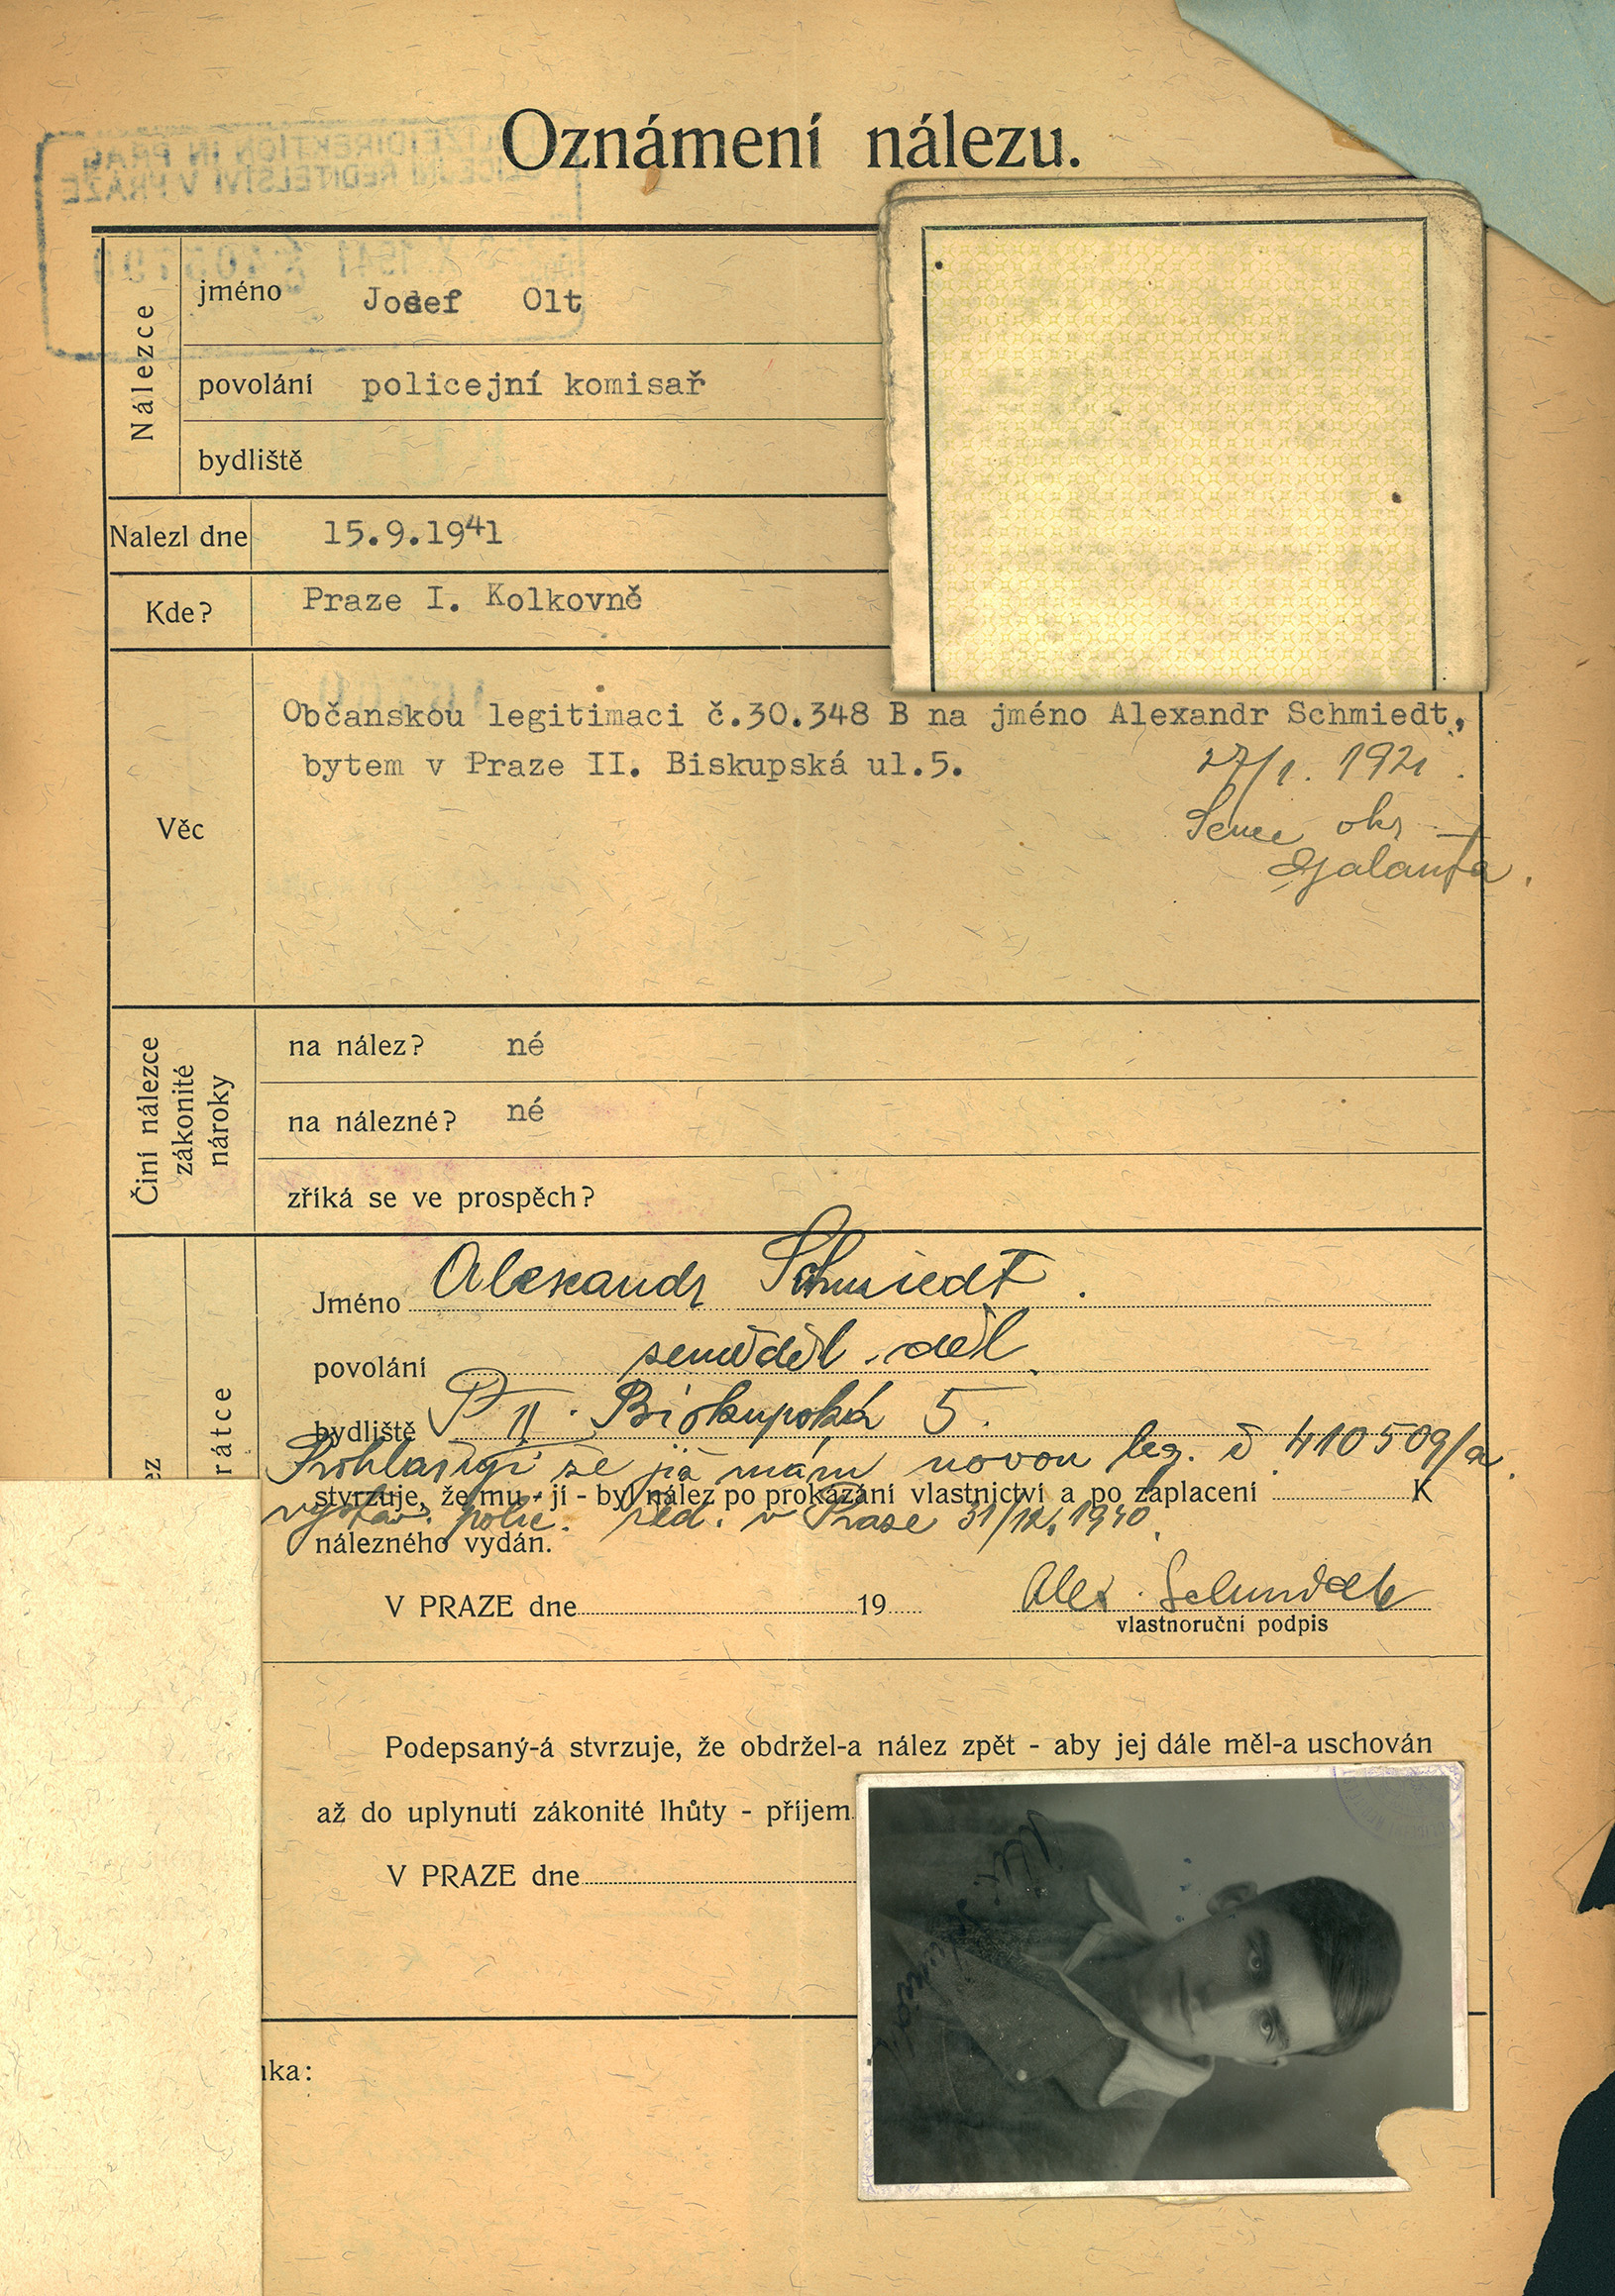 POLIZEIDIREKTION IN PRAG
POLICEJNÍ ŘEDITELSTVÍ V PRAZE
1941
Oznámení nálezu.
Nálezce
jméno Josef Olt
povolání policejní komisař
bydliště
Nalezl dne 15.9.1941
Kde? Praze I. Kolkovně
Věc
Občanskou legitimaci č.30.348 B na jméno Alexandr Schmiedt,
bytem v Praze II. Biskupská ul.5.
27/1. 1921.
Senec okr.
Galanta.
Činí nálezce zákonité nároky
na nález? né
na nálezné? né
zříká se ve prospěch?
rátce
ez
Jméno Alexandr Schmiedt.
povolání seměděl. děl.
bydliště P II. Biskupská 5.
Prohlašuji že již mám novou leg. č 410509/a.
stvrzuje, že mu - jí - byl nález po prokázání vlastnictví a po zaplacení K
vystav. polic. řed. v Praze 31/12.1940.
nálezného vydán.
V PRAZE dne 19
Alex. Schmiedt
vlastnoruční podpis
Podepsaný-á stvrzuje, že obdržel-a nález zpět - aby jej dále měl-a uschován
až do uplynutí zákonité lhůty - příjem
V PRAZE dne
ka: